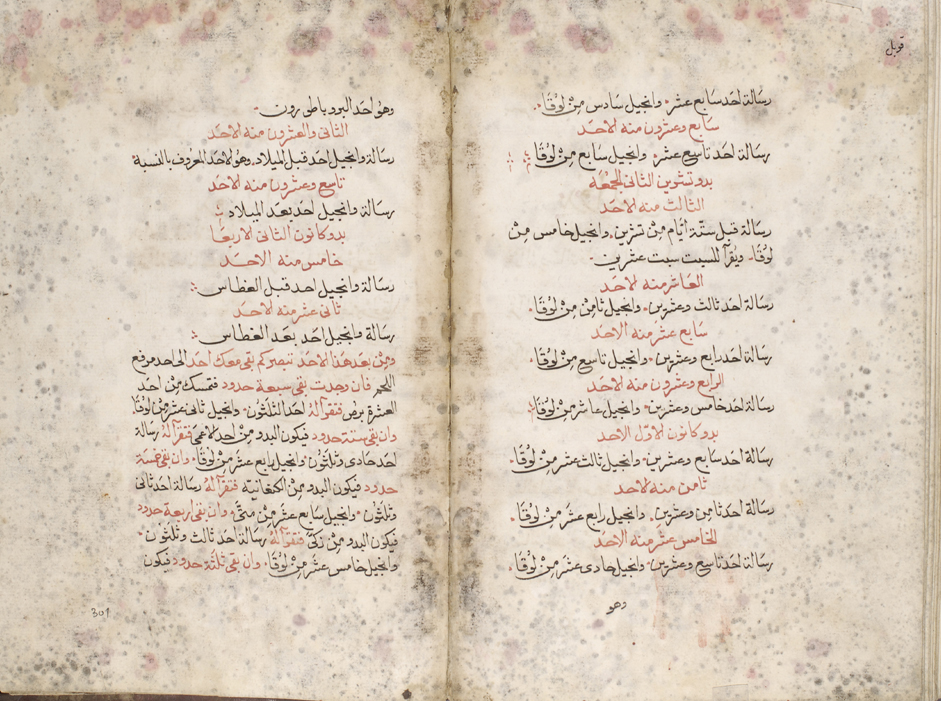 قوبل
رسالة احد سابع عشر وانجيل سادس من لوقا
سابع وعشرون منه الاحد
رسالة احد تاسع عشر وانجيل سابع من لوقا
بدو تشرين الثاني الجمعة
الثالث منه الاحد
رسالة قبل ستة أيام من تشرين وانجيل خامس من
لوقا ويقرأ للسبت سبت عشرين
العاشر منه لاحد
رسالة احد ثالث وعشرين وانجيل ثامن من لوقا
سابع عشر منه الاحد
رسالة احد رابع وعشرين وانجيل تاسع من لوقا
الرابع وعشرون منه الاحد
رسالة احد خامس وعشرين وانجيل عاشر من لوقا
بدو كانون الاول الاحد
رسالة احد سابع وعشرين وانجيل ثالث عشر من لوقا
ثامن منه لاحد
رسالة احد ثامن وعشرين وانجيل رابع عشر من لوقا
الخامس عشر منه الاحد
رسالة احد تاسع وعشرين وانجيل حادى عشر من لوقا
وهو
وهو احد البروباطورون
الثاني والعشرون منه الاحد
رسالة وانجيل احد قبل الميلاد وهو لاحد المعروف بالنسبة
تاسع وعشرون منه الاحد
رسالة وانجيل احد بعد الميلاد
بدو كانون الثاني لاربعا
خامس منه الاحد
رسالة وانجيل احد قبل الغطاس
ثاني عشر منه لاحد
رسالة وانجيل احد بعد الغطاس
ومن بعد هذا الاحد تبصر كم بقي معك احد الى احد مرفع
اللحم فان وجدت بقي سبعة حدود فتمسك من احد
العشرة برص فتقرأ له احد الثلثون وانجيل ثاني عشر من لوقا
وان بقي ستة حدود فيكون البدو من احد لاعمى فتقرأ له رسالة
احد حادى وثلثون وانجيل رابع عشر من لوقا وان بقي خمسة
حدود فيكون البدو من الكنعانية فتقرأ له رسالة احد ثاني
وثلثون وانجيل سابع عشر من متى وان بقي اربعة حدود
فيكون البدو من زكى فتقرأ له رسالة احد ثالث وثلثون
وانجيل خامس عشر من لوقا وان بقي ثلثة حدود فيكون
301